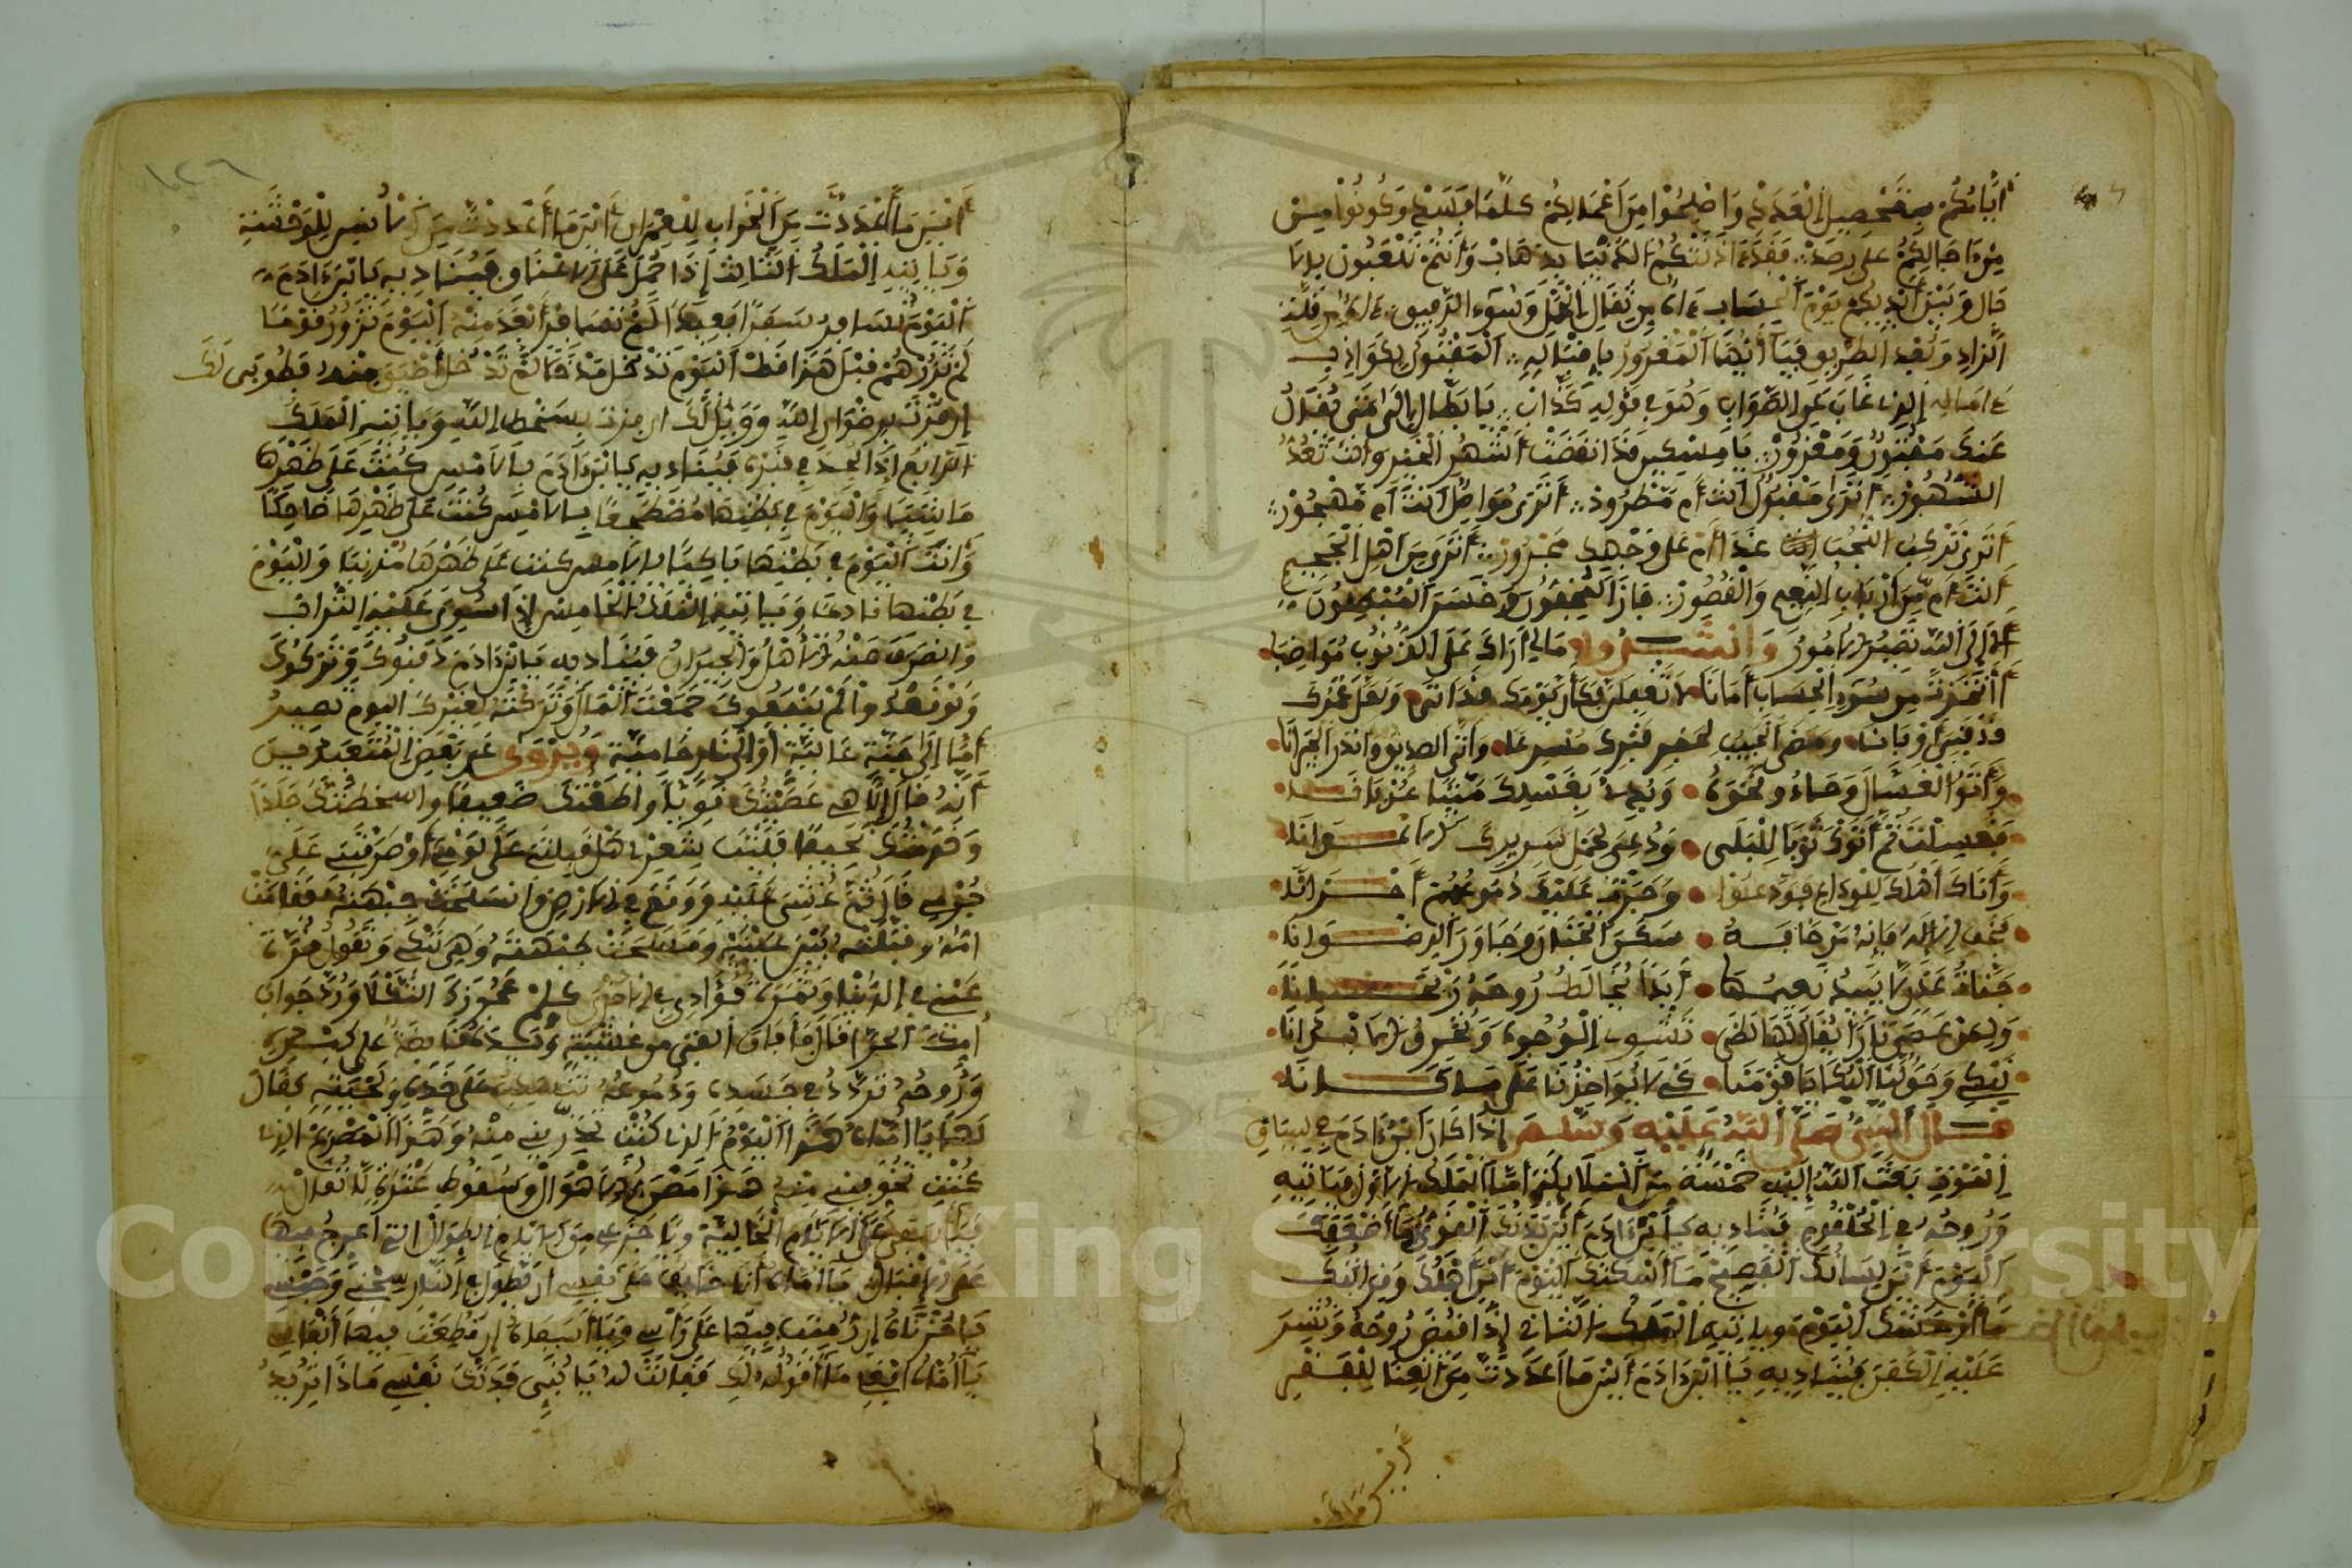 أيامكم بتحصيل العدد واصلحوا من أعمالكم كلما فسد وكونوا من
على رصد فقد آذنتكم الدنيا بذهاب وأنتم تلعبون
حال وبين أيديكم يوم الحساب من ثقال الحمل
الزاد وبعد الطريق فيا أيها المغرور بإقباله المفتون بكواذب
غاب عن الصواب وهو في قوله كذاب يا بطال إلى متى
مغبون ومغرور يا مسكين قد انقضت أشهر الخير وأنت تعد
الشهور أترى مقبول أنت أم مطرود أترى مواصل أنت أم مهجور
أترى تركب النجب غدا أم على وجهك مجرور أترى من أهل الجحيم
أنت أم من أرباب النعيم والقصور فاز المخفون وخسر المبطلون
ألا إلى الله تصير الأمور وانشدوا مالي أراك على الذنوب مواضبا
أأخذت من سوء الحساب أمانا لا تغفلن كأن يومك قد أتى ولعل عمرك
قد فنى أو بانا ومضى الحبيب لحفر قبرك مسرعا وأتى الصديق وأنذر الجيرانا
وأتوا بغسال وجاءوا نحوه وبدا بغسلك ميتا عريانا
فغسلت ثم أتوك ثوبا للبلى ودعى لحمل سريرك الإخوانا
وأتاك أهلك للوداع فودعوا وجرت عليك دموعهم أحزانا
فخف الإله فإنه من خافه سكن الجنان وجاور الرضوانا
جنات عدن لا يبيد نعيمها أبدا يخالط روحه ريحانا
ولمن عصى نارا يقال لها لظى تشوى الوجوه وتحرق الأبدانا
نبكي وحق لنا البكا يا قومنا كي لا يواخذنا على ما كانا
قال النبي صلى الله عليه وسلم إذا كان ابن ءادم في سياق
الموت بعث الله إليه خمسة من الملايكة أما الملك الأول فياتيه
وروحه في الحلقوم فيناديه يا ابن ءادم أين بدنك القوي ما أضعفك
اليوم أين لسانك الفصيح ما أسكتك اليوم أين أهلك وقرابتك
ما أوحشك اليوم وياتيه الملك الثاني إذا قبض روحه ونشر
عليه الكفن فيناديه يا ابن ءادم أين ما أعددت من الغنا للفقر
أين
ما أعد
١٢٦
أين ما أعددت من الخراب للعمران أين ما أعددت من الأنس للوحشة
وياتيه الملك الثالث إذا حمل على الأعناق فيناديه يا ابن ءادم
اليوم تسافر سفرا بعيدا لم تسافر أبعد منه اليوم تزور قوما
لم تزرهم قبل هذا قط اليوم تدخل مدخلا لم تدخل أضيق منه فطوبى لك
إن فزت برضوان الله وويل لك إن فزت بسخط الله وياتيه الملك
الرابع إذا لحد في قبره فيناديه يا ابن ءادم بالأمس كنت على ظهرها
ماشيا واليوم في بطنها مضطجعا بالأمس كنت على ظهرها ضاحكا
وأنت اليوم في بطنها باكيا بالأمس كنت على ظهرها مذنبا واليوم
في بطنها نادما وياتيه الملك الخامس إذا سوي عليه التراب
وانصرف عنه الأهل والجيران فيناديه يا ابن ءادم دفنوك وتركوك
ولو قعدوا لم ينفعوك جمعت المال وتركته لغيرك اليوم تصير
إما إلى جنة عالية أو إلى نار حامية ويروى عن بعض المتعبدين
أنه قال إلاهي عصيتك قويا وأطعتك ضعيفا وأسخطتك جلدا
وخدمتك نحيفا فليت شعري هل قبلتني على لومي أو صرفتني على
جرمي قال ثم غشي عليه ووقع في الأرض وانسلخت جبهته فقامت
أمه وقبلته بين عينيه ومسحت جبهته وهي تبكي وتقول قرة
عيني في الدنيا وثمرة فؤادي في الآخرة كلم عجوزك الثكلا ورد جواب
أمك الحرا قال فأفاق الفتى من غشيته ويده قابضة على كبده
وروحه تردد في جسده ودموعه على خده ولحيته فقال
لها يا أماه هذا اليوم الذي كنت تحذريني منه وهذا المصرع الذي
كنت تخوفيني منه هذا مصرع الأهوال وسقوط عثرة الأثقال
فيا أسفى على الأيام الخالية ويا جزعي من الأيام الطوال التي لم أعرج فيها
على الإقبال يا أماه أنا خايف على نفسي أن يطول في النار سجني وحبسي
يا حزناه إن رميت فيها على رأسي ويا أسفاه إن قطعت فيها أنفاسي
يا أماه افعلي ما أقوله لك فقالت له يا بني فدتك نفسي ماذا تريد